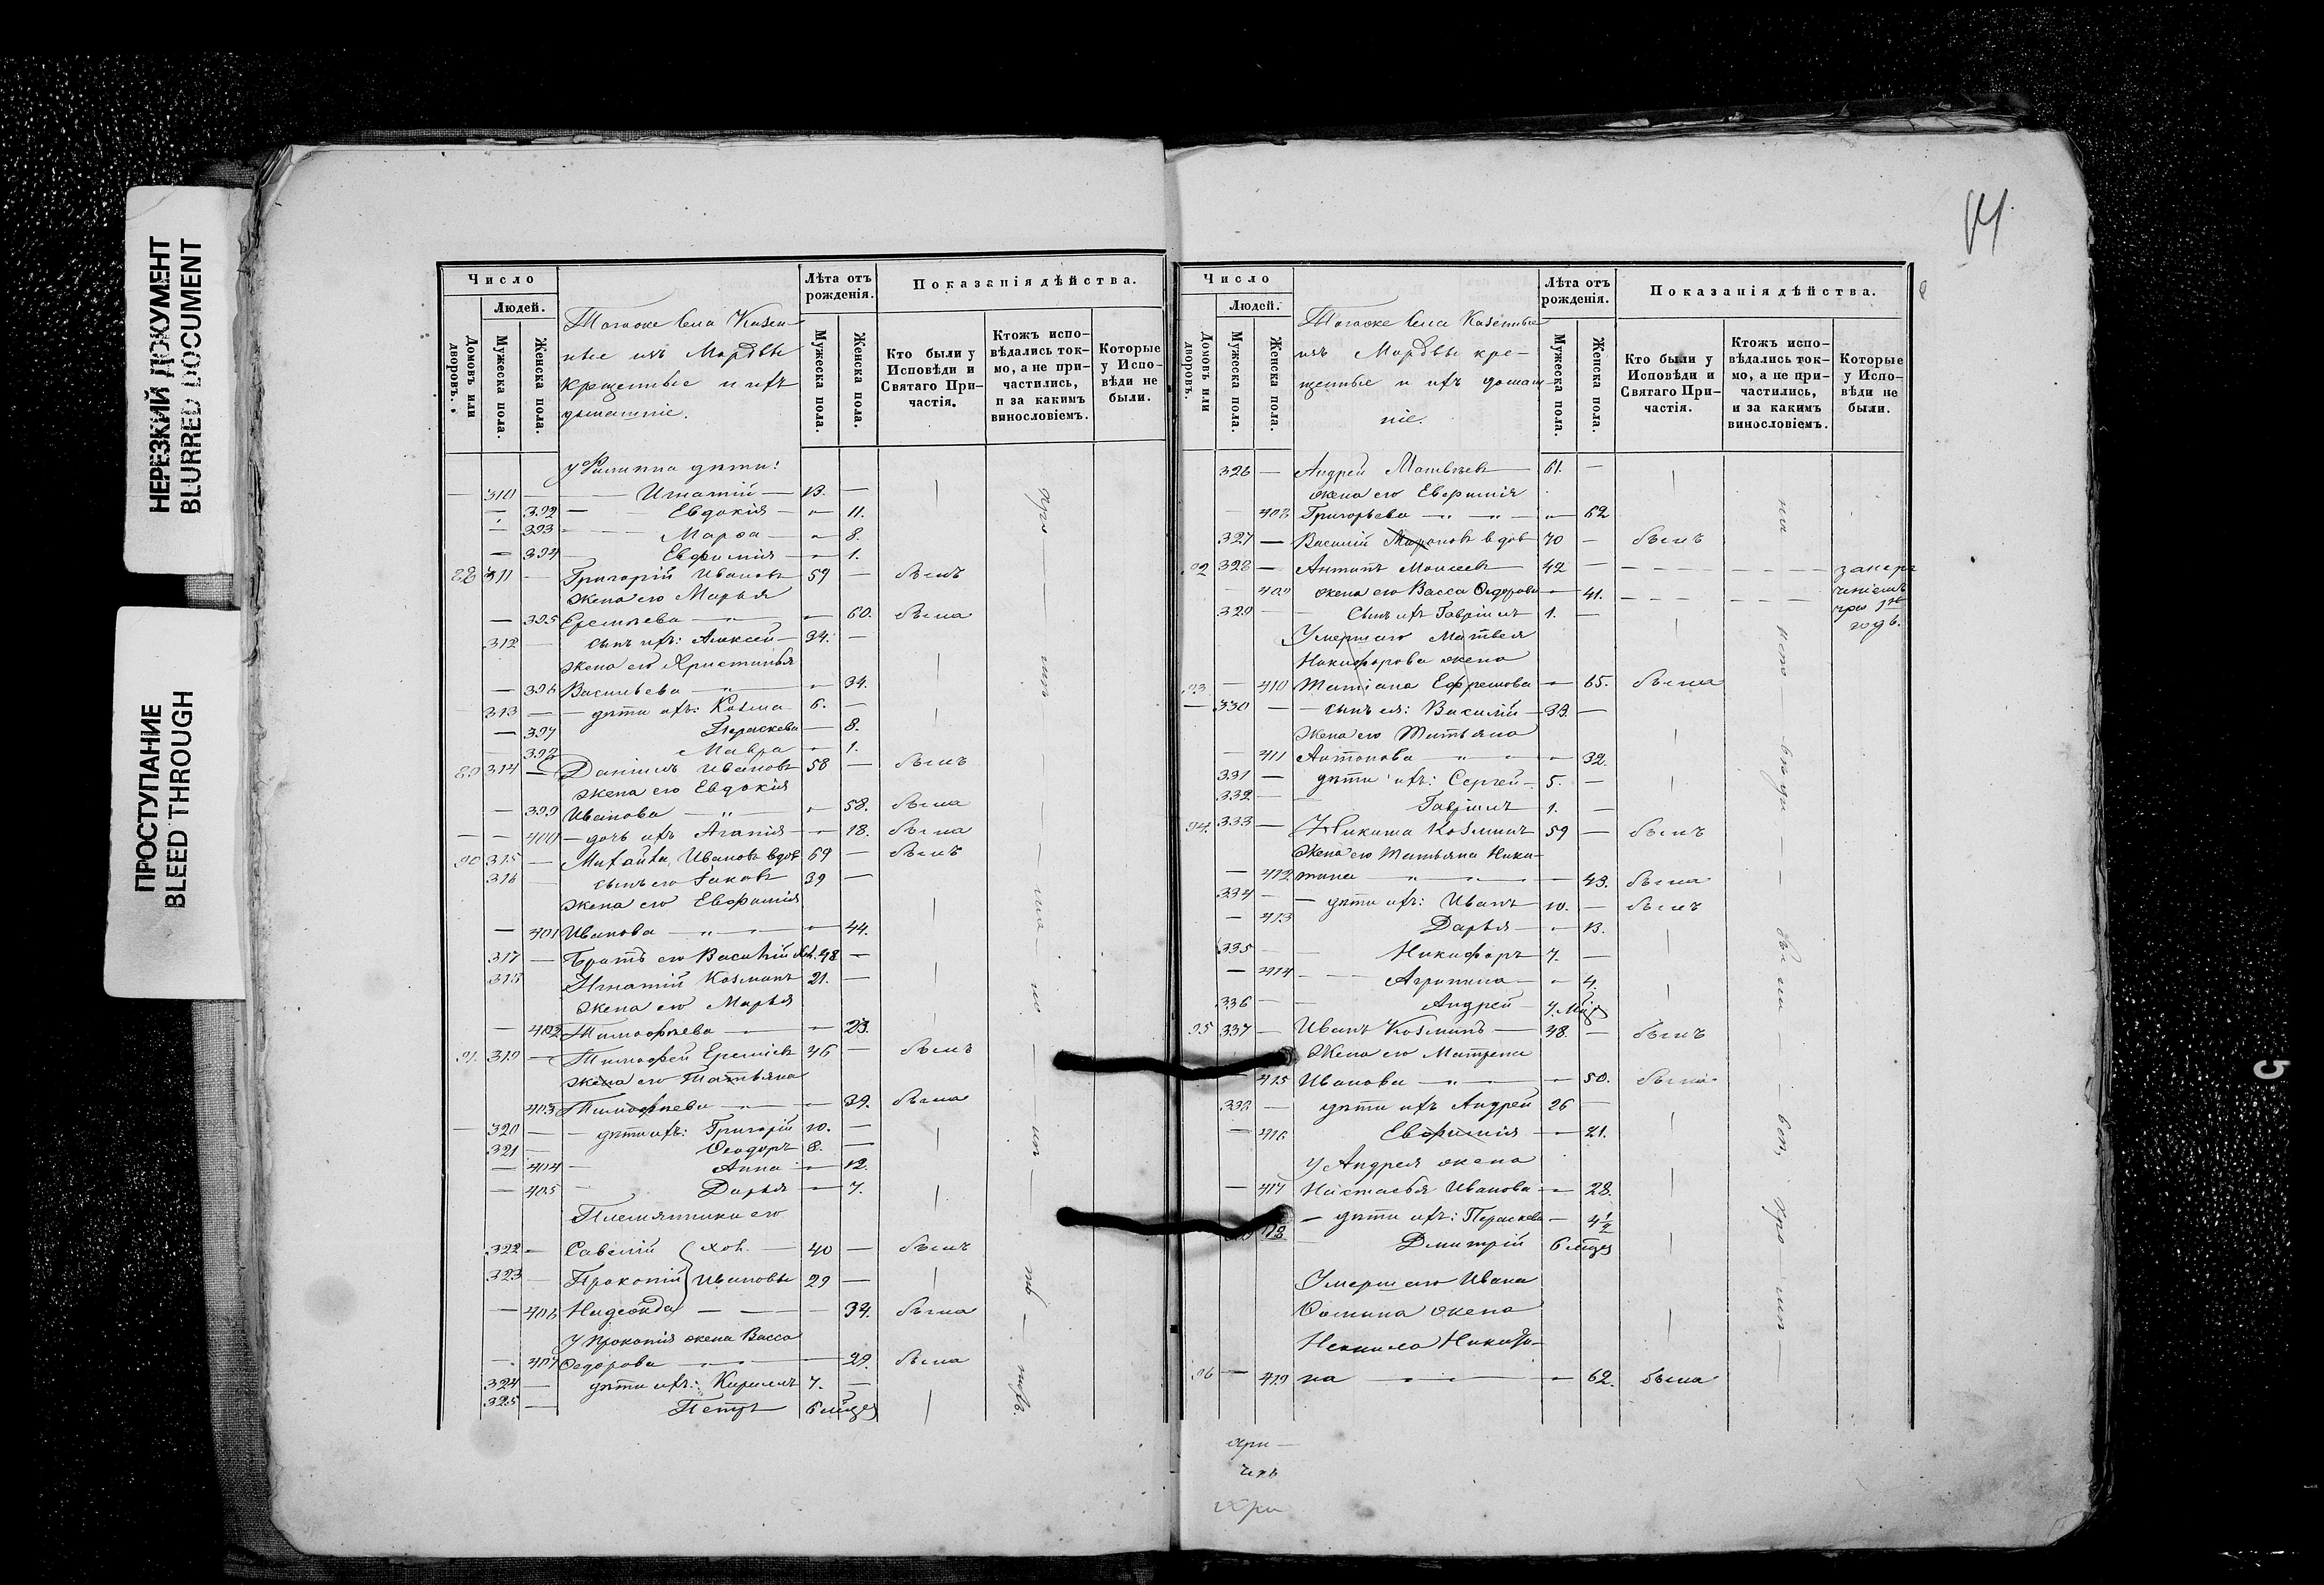 НЕРЕЗКИЙ ДОКУМЕНТ
BLURRED DOCUMENT
ПРОСТУПАНИЕ
BLEED THROUGH
Число
Людей.
Домовъ или дворовъ.
Мужеска пола.
Женска пола.
Тогоже Села Казен-
ные изъ Мордвы
крещенные и ихъ
домашніе.
Лѣта отъ рожденія.
Мужеска пола.
Женска пола.
Показанія дѣйства.
Кто были у Исповѣди и Святаго При-частія.
Ктожъ испо-вѣдались ток-мо, а не при-частились, и за какимъ винословіемъ.
Которые у Испо-вѣди не были.
у Филиппа дѣти:
— 310 — Игнатій — 13. —
— 392 — Евдокія — 11.
— 393 — Марѳа — 8.
— 394 — Евфимія — 1.
88 311 — Григорій Ивановъ 59 — былъ
жена его Марья
— 395 Еремѣева — 60. была
312 — сынъ ихъ: Алексей — 34. —
жена его Христинья
— 396 Васильева — " — 34.
313 — дѣти ихъ: Козма 6. —
— 397 Параскева — 8.
— 398 Мавра — 1.
89 314 — Даніилъ Ивановъ 58 — былъ
жена его Евдокія
— 399 Иванова — " — 58. была
— — 400 — дочь ихъ Агапія — 18. была
90 315 — Михайла Ивановъ вдов 69 — былъ
316 — сынъ его Іаковъ 39 —
жена его Евфимія
— 401 Иванова — " — 44.
317 — Братъ его Василій хол. 48 —
318 Игнатій Козминъ 21. —
жена его Марья
— 402 Тимофѣева — 23.
91. 319 — Тимофей Ереміевъ 46 — былъ
жена его Татьяна
403 Тимофѣева — 39. была
— 320 — дѣти ихъ: Григорій 10. —
321 — Ѳеодоръ 8. —
— 404 — Анна — 12.
— 405 — Дарья — 7.
Племянники его
322 — Савелій хол. — 40 — былъ
323 — Прокопій Ивановы 29 —
— 406 Надежда — 34. была
у Прокопія жена Васса
— 407 Ѳедорова — 29. была
324 — дѣти ихъ: Кириллъ 7. —
325 — Петръ 6 мѣсц
Число
Людей.
Домовъ или дворовъ.
Мужеска пола.
Женска пола.
Тогоже Села Казенные
изъ Мордвы кре-
щенные и ихъ домаш-
ніе.
Лѣта отъ рожденія.
Мужеска пола.
Женска пола.
Показанія дѣйства.
Кто были у Исповѣди и Святаго При-частія.
Ктожъ испо-вѣдались ток-мо, а не при-частились, и за какимъ винословіемъ.
Которые у Испо-вѣди не были.
326 — Андрей Матвѣевъ — 61. —
жена его Евфимія
— 408 Григорьева — " — " — 62
327 — Василій Мироновъ вдов 70 — былъ
92 328 — Антипъ Моисеевъ 42 —
— 409 жена его Васса Ѳедорова — 41.
329 — Сынъ ихъ Гавріилъ 1. —
Умершаго Матвея
Никифорова жена
93 — 410 Татіана Ефремова — 65. была
— 330 — сынъ ея: Василій — 33. —
жена его Татьяна
— 411 Антонова — " — 32.
331 — дѣти ихъ: Сергей — 5. —
332 — Гавріилъ 1. —
94. 333 — Никита Козминъ 59 — былъ
жена его Татьяна Ники-
— 412 тина — " — 43. была
334 — дѣти ихъ: Иванъ 10. — былъ
— 413 Дарья — 13.
335 — Никифоръ 7. —
— 414 — Агрипина — 4.
336 — Андрей 7. мѣсц
95 337 — Иванъ Козминъ — 48. — былъ
Жена его Матрена
— 415 Иванова — " — 50. была
338 — дѣти ихъ Андрей 26 —
— 416 Евфимія — 21.
у Андрея жена
— 417 Настасья Иванова — 28.
— дѣти ихъ: Параскева — 4½
Дмитрій 6 мѣсц
Умершаго Ивана
Ѳомина жена
Неонила Никити-
96 — 419 на — 62. была
5